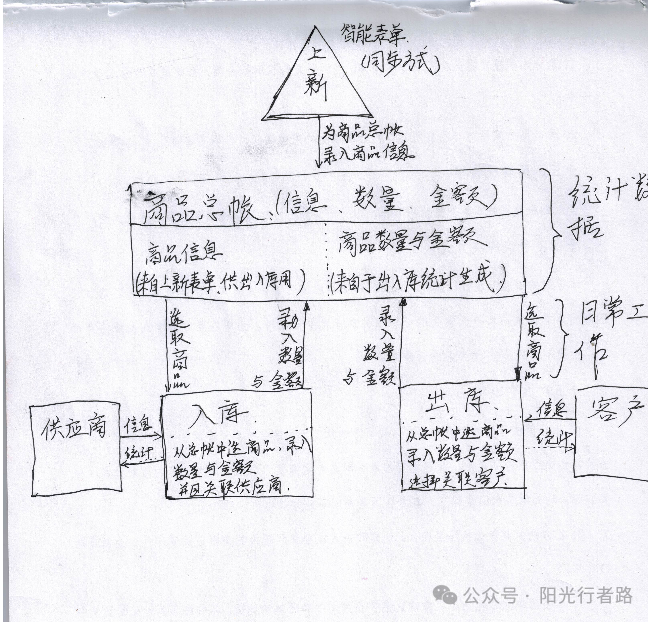 智能表单
(同步方式)
上
新
为商品总帐
录入商品信息
商品总帐、(信息、数量、金额)
商品信息
(来自上新表单,供出入库用)
商品数量与金额
(来自于出入库统计生成.)
统计数
据
选取商品
录入数量
与金额
录入数量
与金额
选取商品
日常工
作
供应商
信息
统计
入库
从总帐中选商品,录入
数量与金额
并且关联供应商.
出库
从总帐中选商品
录入数量与金额
选择关联客户.
信息
统计
客户
公众号·阳光行者路